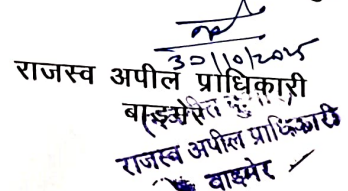 30/10/2025
राजस्व अपील प्राधिकारी
बाड़मेर
राजस्व अपील प्राधिकारी
बाड़मेर